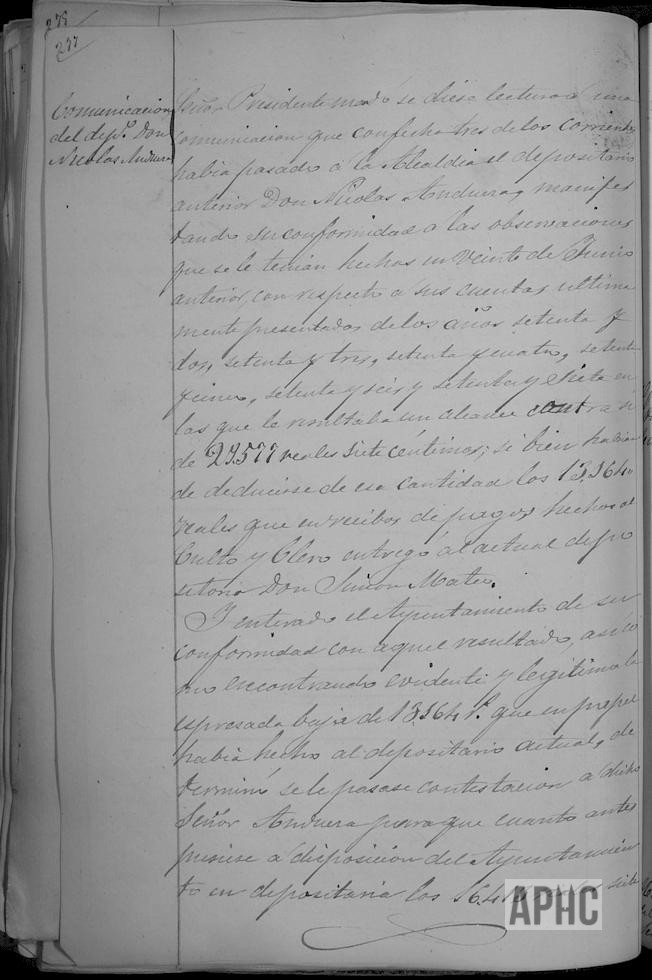 277
Comunicacion
del depº. Don
Nicolas Anduera
Señor Presidente mandó se diese lectura á una
comunicacion que con fecha tres de los corrientes
habia pasado á la Alcaldia el depositario
anterior Don Nicolas Anduera, manifes
tando su conformidad á las observaciones
que se le tenian hechas en veinte de Junio
anterior, con respecto á sus cuentas ultima
mente presentadas de los años setenta y
dos, setenta y tres, setenta y cuatro, setenta
y cinco, setenta y seis y setenta y siete en
las que le resultaba un alcance contra si
de 29577 reales siete céntimos; si bien habian
de deducirse de esa cantidad los 13.164
reales que en recibos de pagos hechos al
Culto y Clero entregó al actual depo
sitario Don Simon Mateo.
Y enterado el Ayuntamiento de su
conformidad con aquel resultado, asi co
mo encontrando evidente y legitima la
espresada baja de 13.164 r.s que en papel
habia hecho al depositario actual, de
terminó se le pasase contestacion a dicho
Señor Anduera para que cuanto antes
pusiese a disposicion del Ayuntamien
to en depositaria los siete
APHC